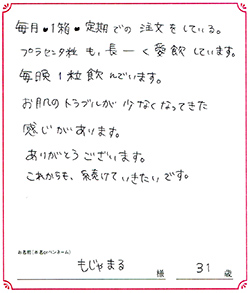 毎月・1箱・定期での注文をしている。
プラセンタ粒も、長ーく愛飲しています。
毎晩1粒飲んでいます。
お肌のトラブルが少なくなってきた
感じがあります。
ありがとうございます。
これからも、続けていきたいです。
お名前(本名orペンネーム)
もじゃまる 様 31 歳